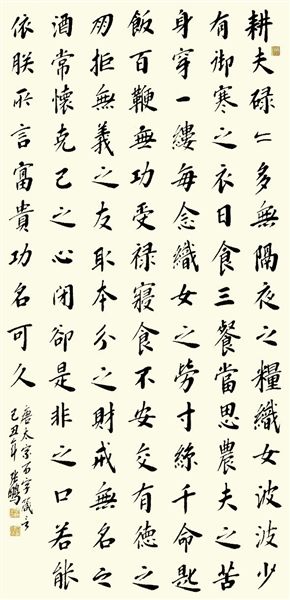 耕夫碌々多無隔夜之糧織女波波少
有御寒之衣日食三餐當思農夫之苦
身穿一縷每念織女之勞寸絲千命匙
飯百鞭無功受祿寢食不安交有德之
朋拒無義之友取本分之財戒無名之
酒常懷克己之心閉卻是非之口若能
依朕所言富貴功名可久
唐太宗百字箴言
己丑年張鵬